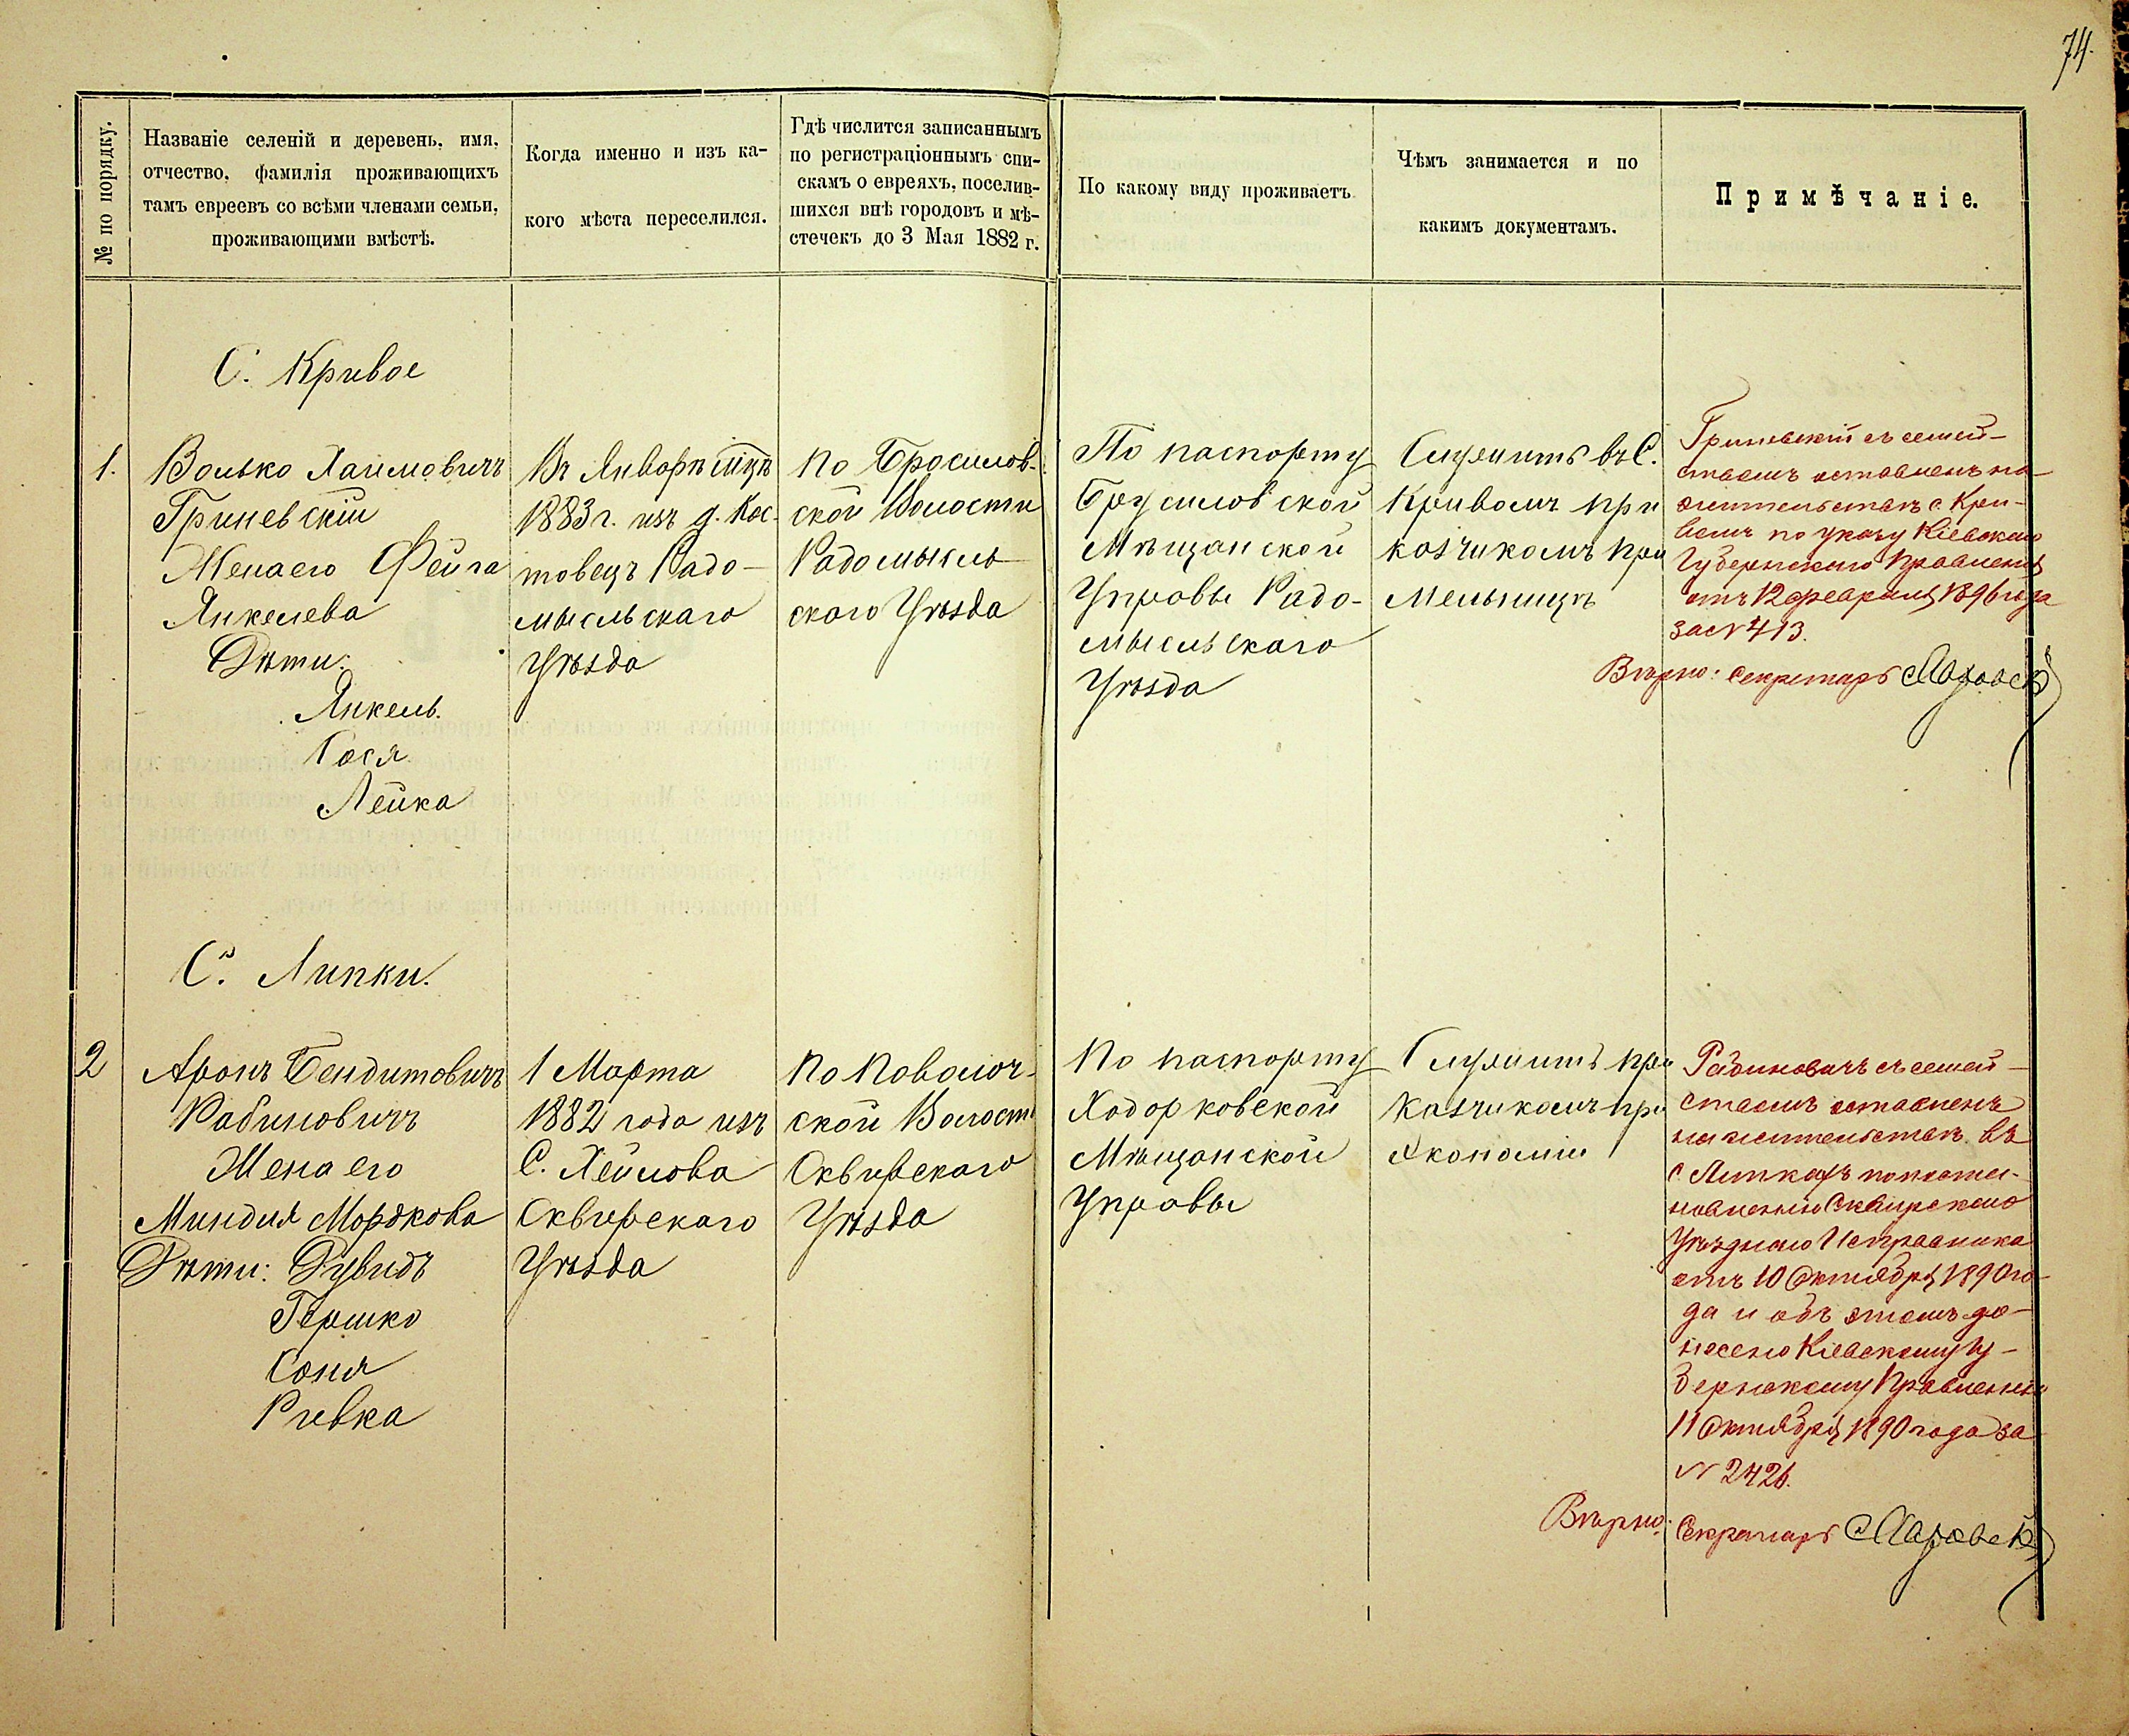 74.
№ по порядку.
Названіе селеній и деревень, имя,
отчество, фамилія проживающихъ
тамъ евреевъ со всѣми членами семьи,
проживающими вмѣстѣ.
Когда именно и изъ ка-
кого мѣста переселился.
Гдѣ числится записаннымъ
по регистраціоннымъ спи-
скамъ о евреяхъ, поселив-
шихся внѣ городовъ и мѣ-
стечекъ до 3 Мая 1882 г.
По какому виду проживаетъ.
Чѣмъ занимается и по
какимъ документамъ.
Примѣчаніе.
С. Кривое
1.
Волько Хаимовичъ
Гриневскій
Жена его Фейга
Янкелева
Дѣти:
Янкель
Гося
Лейка
Въ Январѣ мцѣ
1883 г. изъ д. Кос-
товецъ Радо-
мысльскаго
Уѣзда
По Бросилов-
ской Волости
Радомысль-
ского Уѣзда
По паспорту
Брусиловской
Мѣщанской
Управы Радо-
мысльскаго
Уѣзда
Служитъ въ С.
Кривомъ при
козчикомъ при
Мельницѣ
Гриневскій съ семей-
ствомъ оставленъ на
жительствѣ с. Кри-
вомъ по указу Кіевскаго
Губернскаго Правленія
отъ 12 февраля 1896 года
за № 413.
Вѣрно: Секретарь
С. Липки.
2
Аронъ Бендитовичъ
Рабиновичъ
Жена его
Миндля Мордкова
Дѣти: Дувидъ
Гершко
Соня
Ривка
1 Марта
1882 года изъ
С. Хейлова
Сквирскаго
Уѣзда
По Паволоч-
ской Волости
Сквирскаго
Уѣзда
По паспорту
Ходорковской
Мѣщанской
Управы
Служитъ при
казчикомъ при
Экономіи
Рабиновичъ съ семей-
ствомъ оставленъ
на жительствѣ въ
с. Липкахъ по поста-
новленію Сквирскаго
Уѣзднаго Исправника
отъ 10 Октября 1890 го-
да и объ этомъ до-
несено Кіевскому Гу-
бернскому Правленію
11 Октября 1890 года за
№ 2426.
Вѣрно: Секретарь